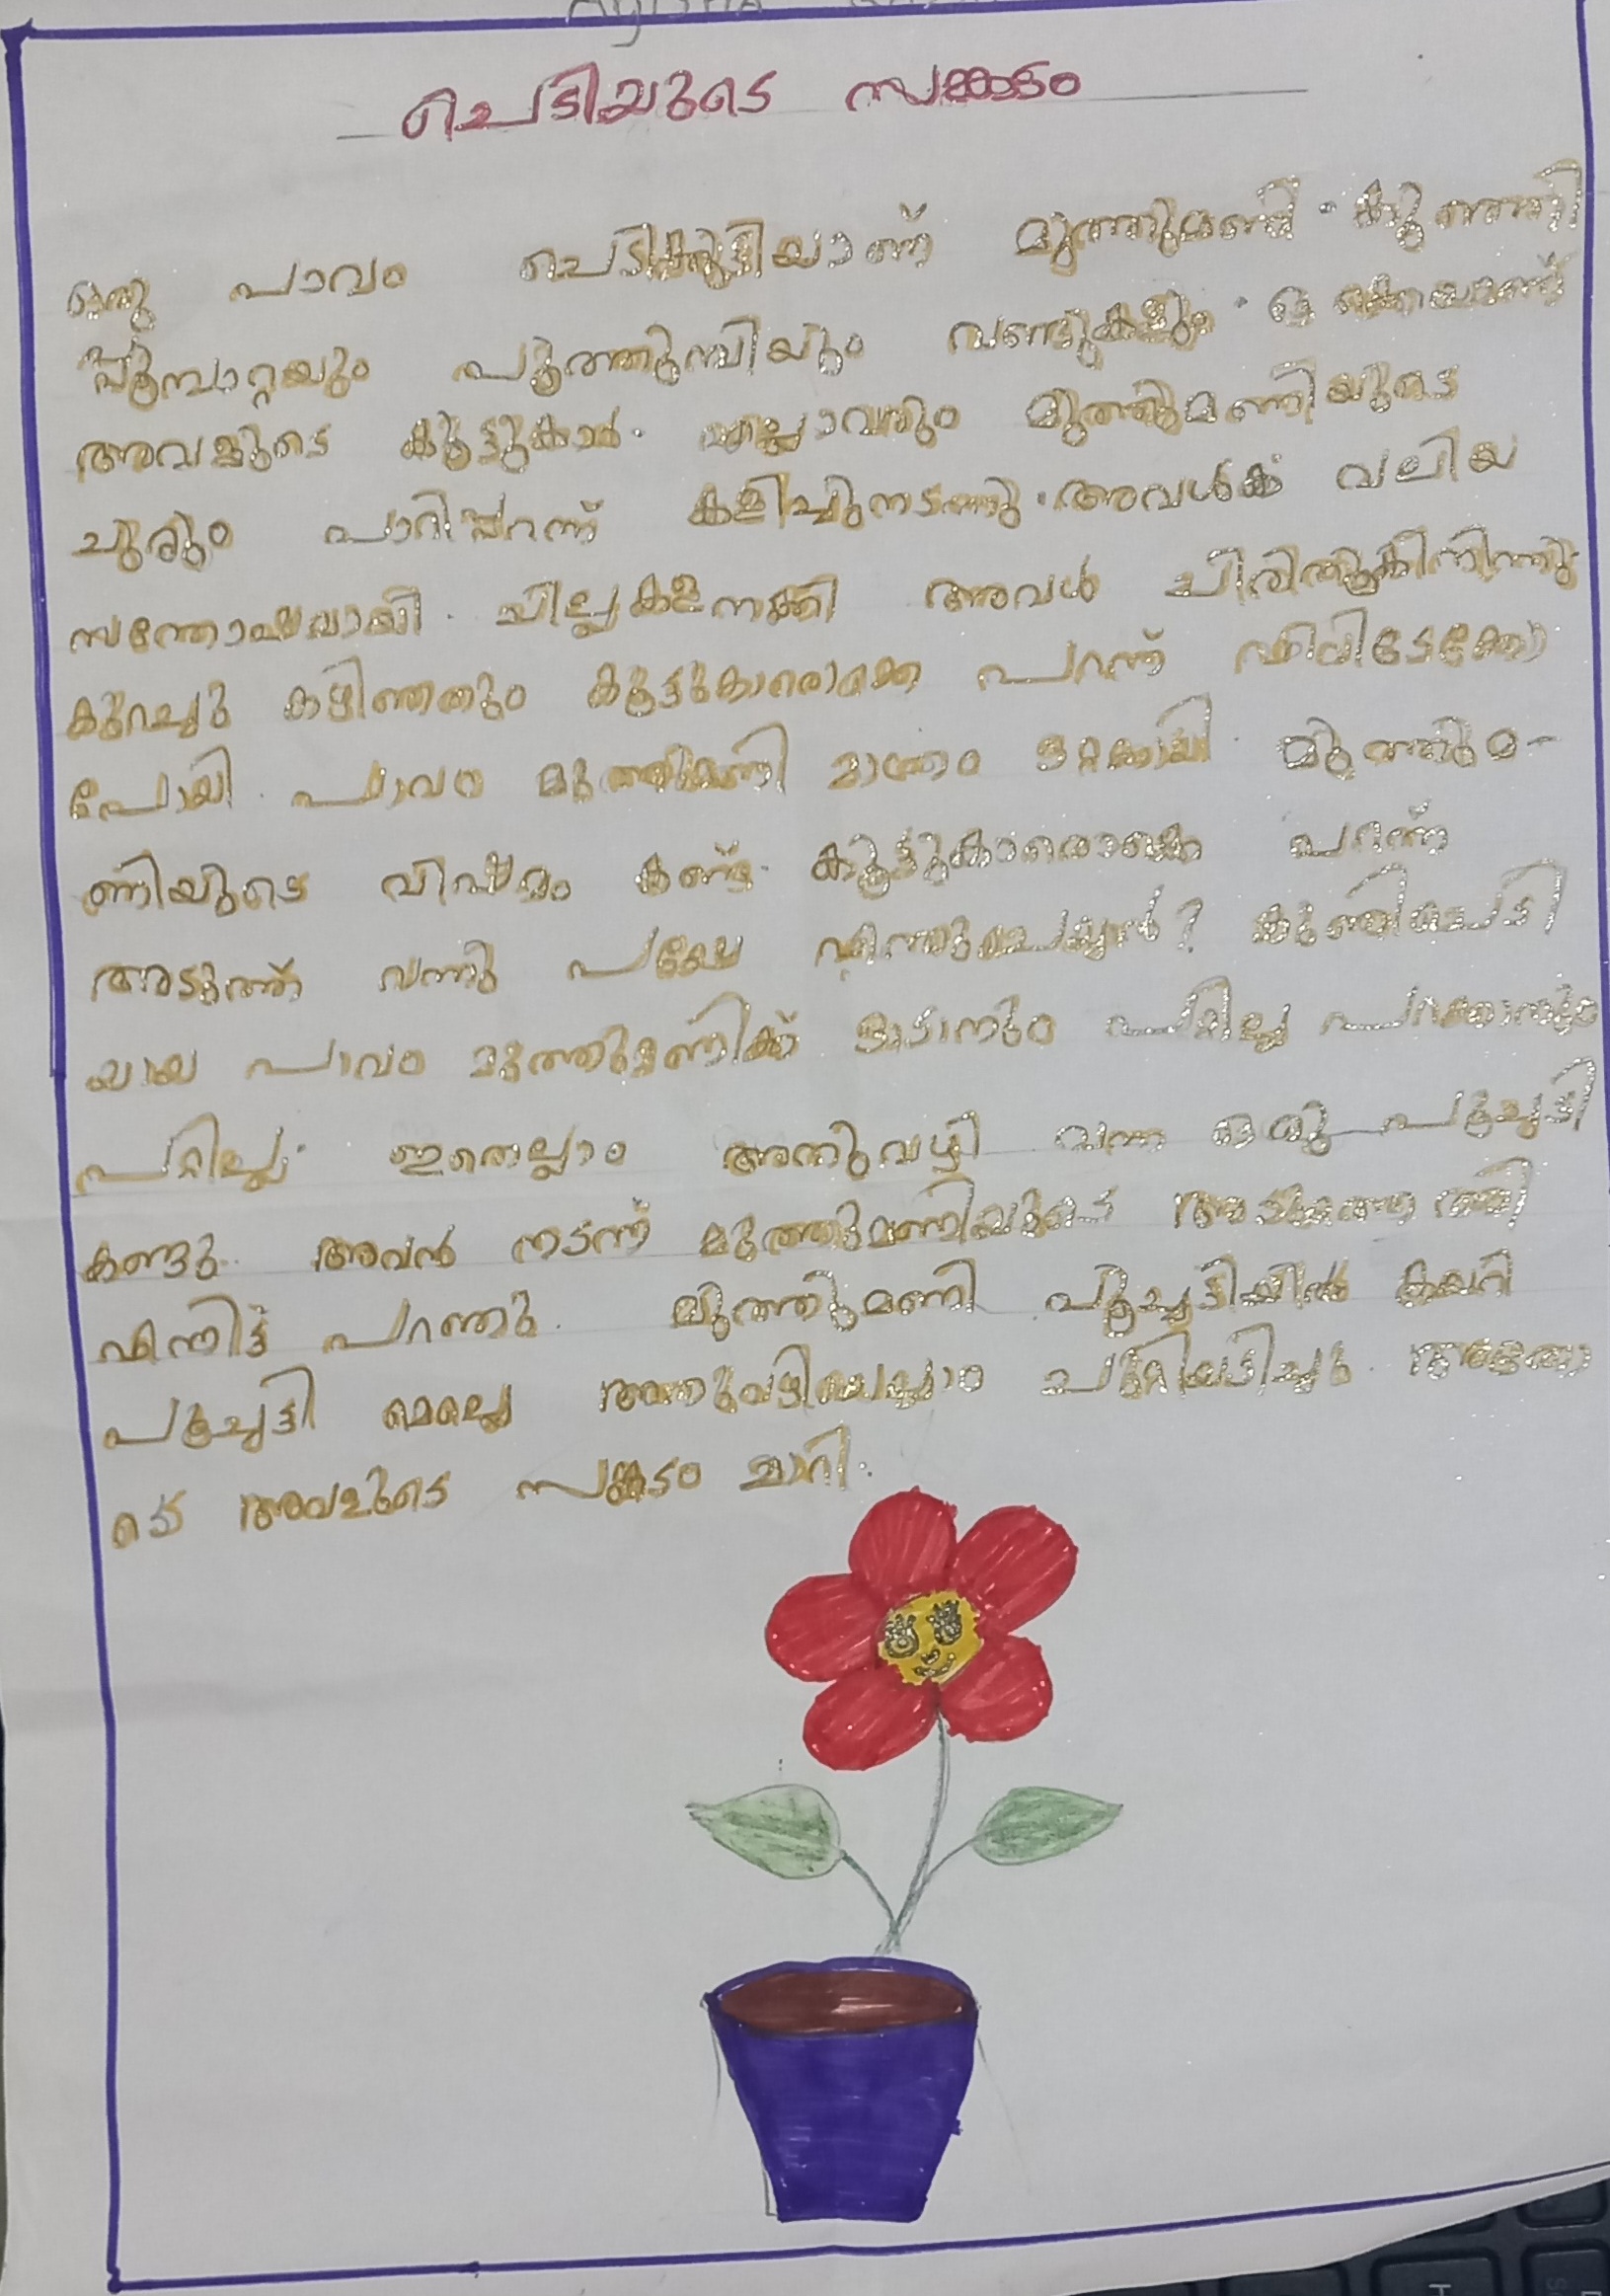 Ayisha
ചെടിയുടെ സങ്കടം
ഒരു പാവം ചെടിക്കുട്ടിയാണ് മുത്തുമണി. കുഞ്ഞി
പ്പൂമ്പാറ്റയും പൂത്തുമ്പിയും വണ്ടുകളും. ഒക്കെയാണ്
അവളുടെ കൂട്ടുകാർ. എല്ലാവരും മുത്തുമണിയുടെ
ചുരും പാറിപ്പറന്ന് കളിച്ചുനടന്നു. അവൾക്ക് വലിയ
സന്തോഷമായി. ചില്ലകളനക്കി അവൾ ചിരിതൂകിനിന്നു.
കുറച്ചു കഴിഞ്ഞതും കൂട്ടുകാരൊക്കെ പറന്ന് എവിടേക്കോ
പോയി. പാവം മുത്തുമണി മാത്രം ഒറ്റക്കായി. മുത്തുമ-
ണിയുടെ വിഷമം കണ്ട്. കൂട്ടുകാരൊക്കെ പറന്ന്
അടുത്ത് വന്നു പക്ഷേ എന്തുചെയ്യാൻ? കുഞ്ഞിച്ചെടി
യായ പാവം മുത്തുമണിക്ക് ഓടാനും പറ്റില്ല പറക്കാനും
പറ്റില്ല. ഇതെല്ലാം അതുവഴി വന്ന ഒരു പൂച്ചട്ടി
കണ്ടു. അവൻ നടന്ന് മുത്തുമണിയുടെ അടുത്തെത്തി
എന്നിട്ട് പറഞ്ഞു. മുത്തുമണി പൂച്ചട്ടിയിൽ കയറി
പൂച്ചട്ടി മെല്ലെ അതുവഴിയെല്ലാം ചുറ്റിയടിച്ചു. അതോ
ടെ അവളുടെ സങ്കടം മാറി.